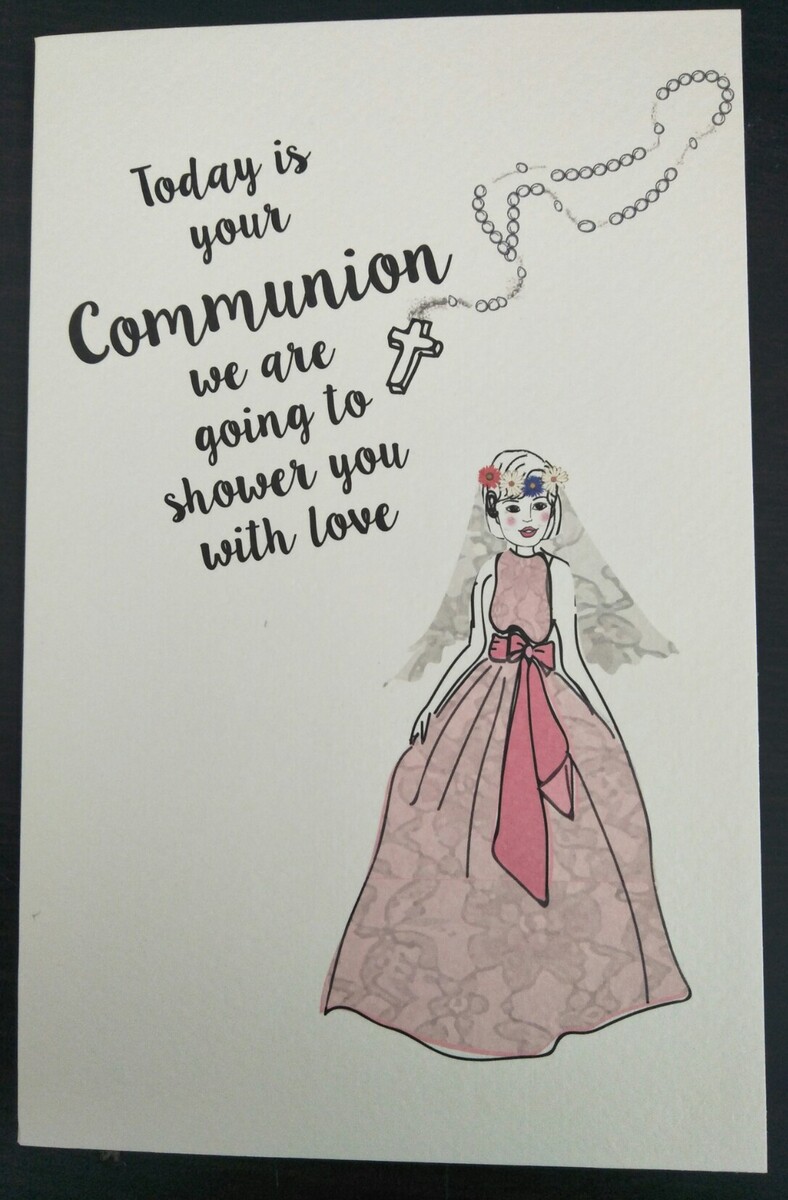 Today is
your
Communion
we are
going to
shower you
with love